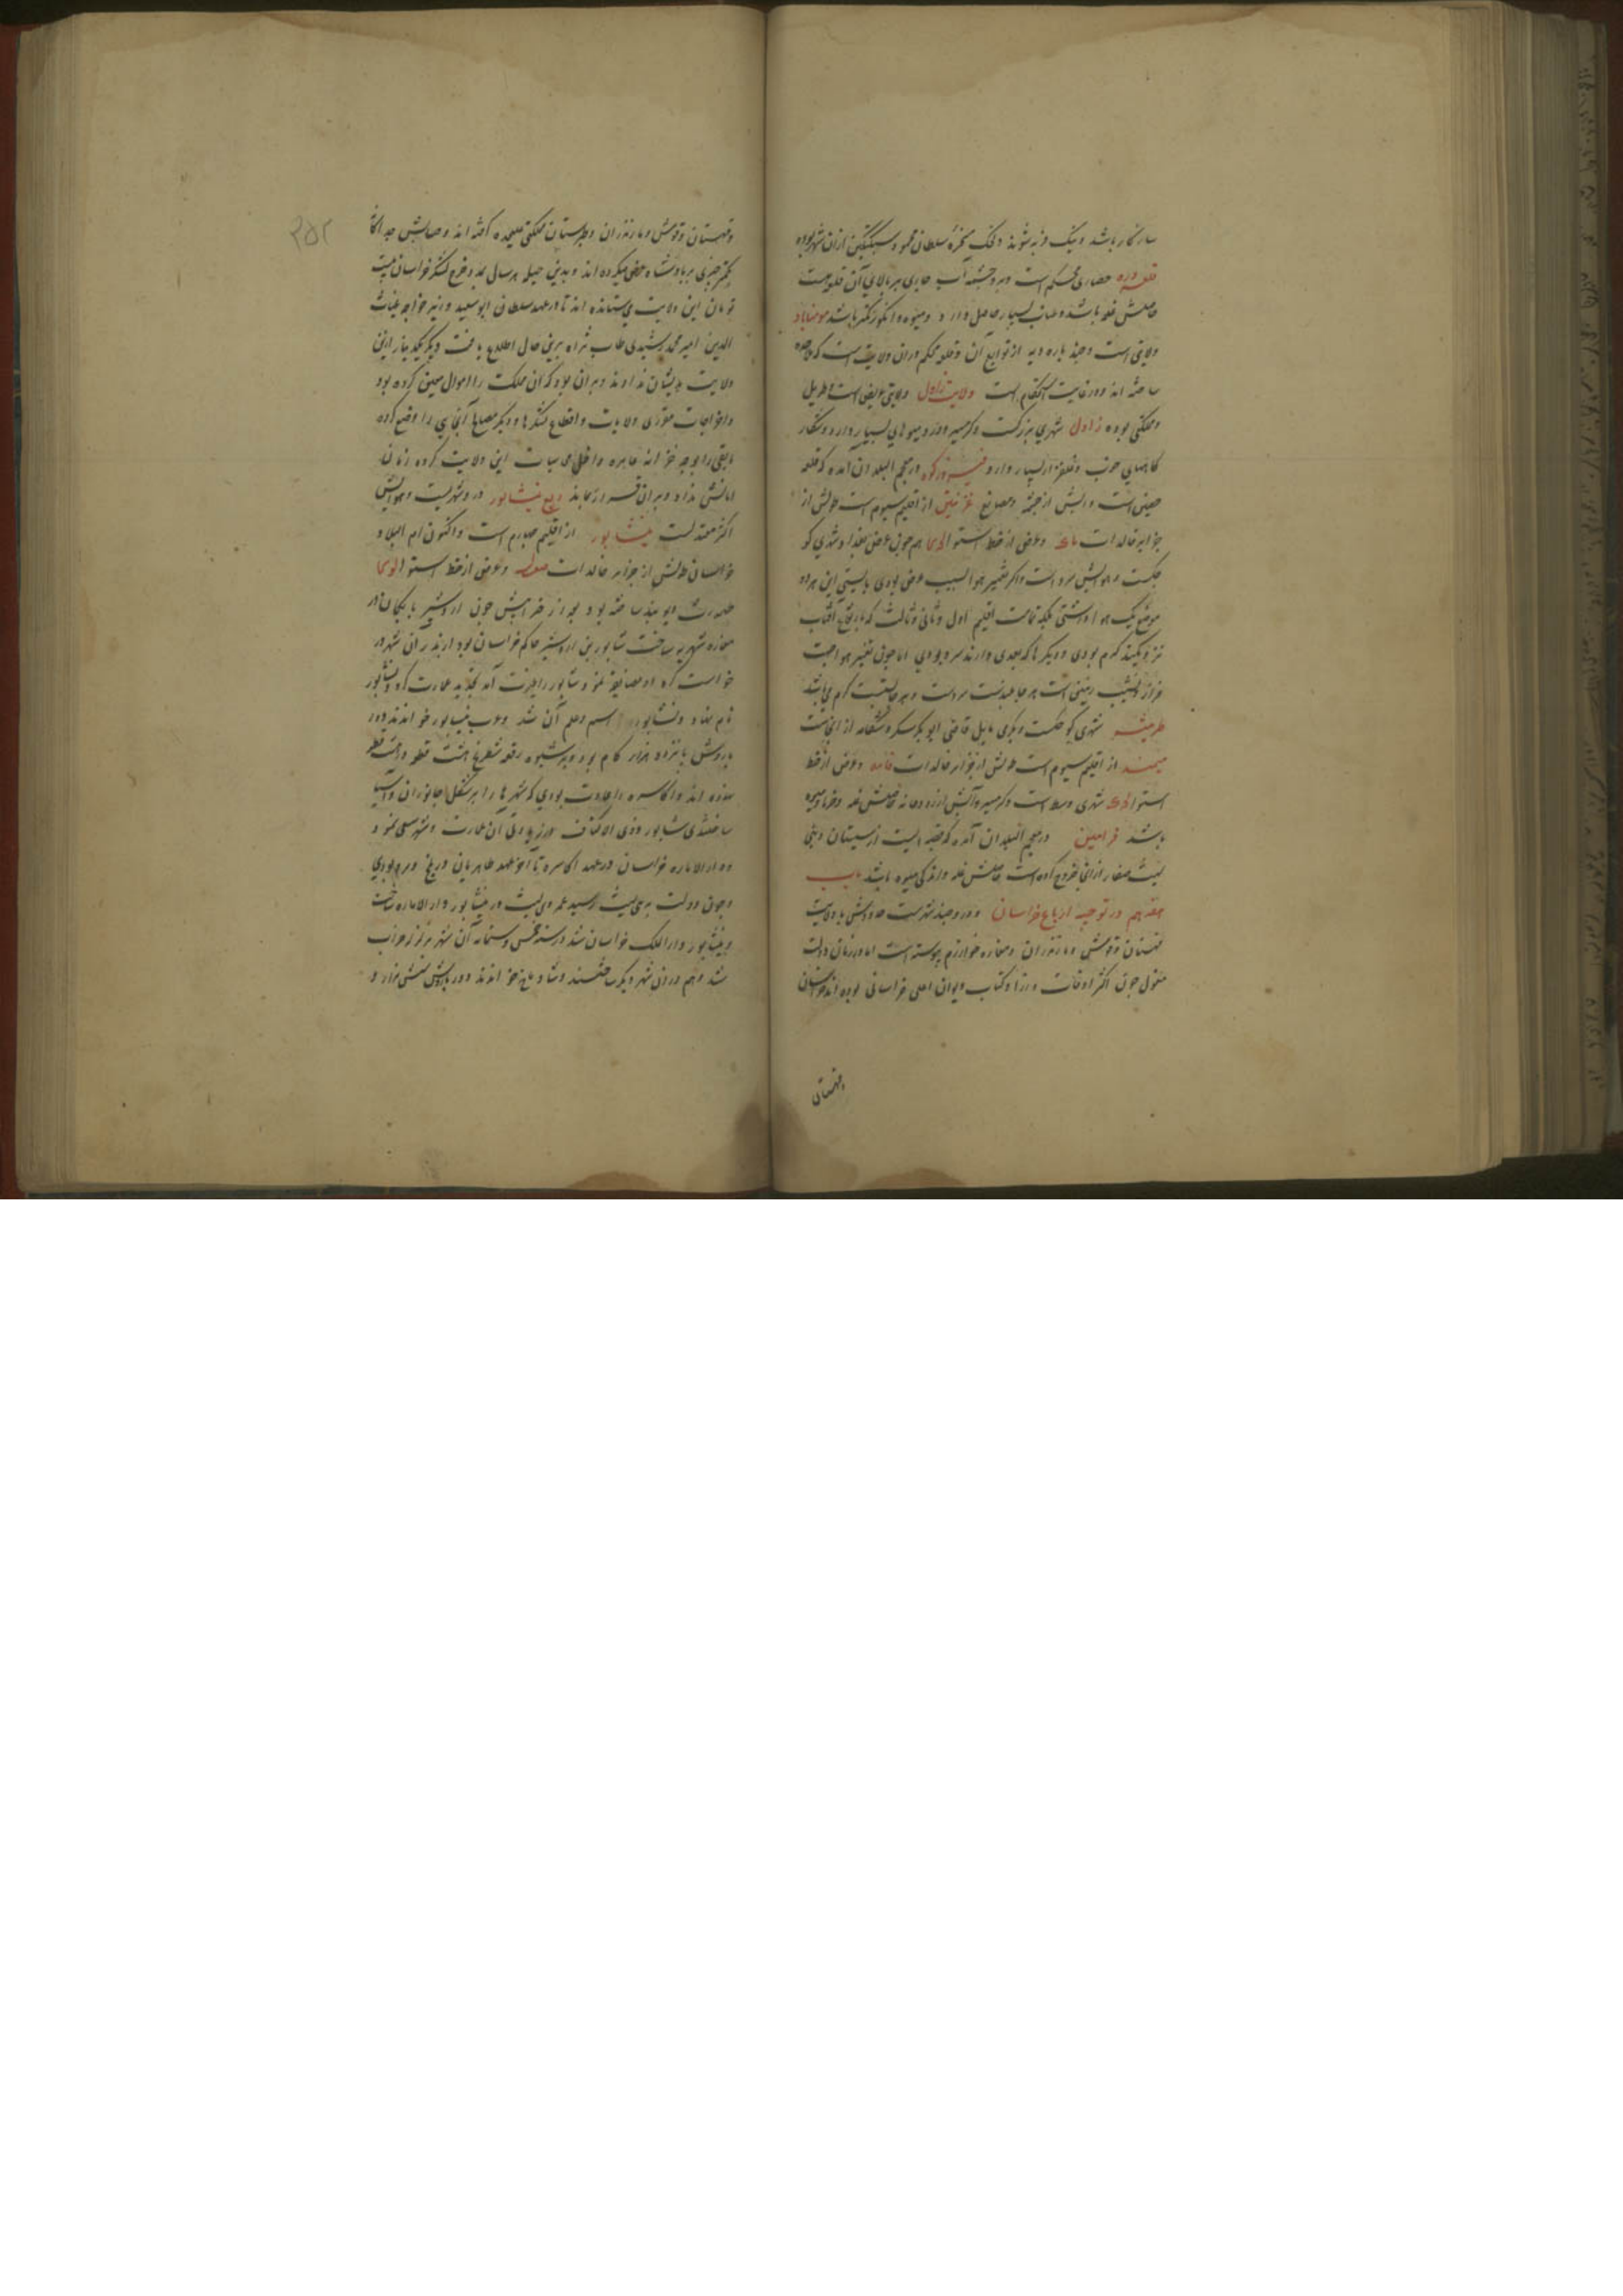 سازگار باشد و نیک فربه شوند و ملک نیمروز سلطان محمود سبکتکین از آن شهر بوده
قلعه دره حصاری محکم است و درو چشمه آب جاری بر بالای آن قلعه است
حاصلش غله باشد و عناب بسیار حاصل دارد و میوه و انگور کمتر باشد مومناباد
ولایتی است و چند پاره دیه از توابع آن و قلعه محکم در آن ولایت است که ملاحده
ساخته اند و در غایت استحکام است ولایت زاول ولایتی عریض است و طویل
و مملکتی بوده زاول شهری بزرگست و گرمسیر و درو میوه های بسیار دارد و شکار
گاههای خوب و علفزار بسیار دارد فیروزکوه در معجم البلدان آمده که قلعه
حصین است و آبش از چشمه و مصانع غزنین از اقلیم سیوم است طولش از
جزایر خالدات و عرض از خط استوا هم چون عرض بغداد شهری کو
چکست و هوایش سرد است و اگر تغییر هوا بسبب عرض بودی بایستی این هر دو
موضع یک هوا داشتی بلکه تمامت اقلیم اول و ثانی و ثالث که بارتفاع آفتاب
نزدیکند گرم بودی و دیگرها که بعدی دارند سرد بودی اما چون تغییر هوا جهت
فراز و نشیب زمین است هر جا بلندست سردست و هر جا پستست گرم می باشد
شهری کوچکست و گرمی مایل قاضی ابوبکر از آنجاست
میمند از اقلیم سیوم است طولش از جزایر خالدات و عرض از خط
استوا شهری وسط است و گرمسیر و آبش از رودخانه حاصلش غله و خرما و میوه
باشد قرامین در معجم البلدان آمده که قصبه ایست از سیستان و بنی
لیث صفار از آنجا خروج کرده است حاصلش غله و اندکی میوه باشد باب
هفدهم در توجیه ارباع خراسان و درو چند شهرست حدودش با ولایت
قهستان و قومش و مازندران و مفازه خوارزم پیوسته است اما در زمان دولت
مغول چون اکثر اوقات وزرا و کتاب دیوان اعلی خراسانی بوده اند خراسان
و قهستان
و قهستان و قومش و مازندران و طبرستان مملکتی علیحده گفته اند و حسابش جداگانه
کمتر چیزی بر پادشاه عرض میکرده اند و بدین حیله هر سال مدد خرج لشکر خراسان بیست
تومان این ولایت می ستانده اند تا در عهد سلطان ابو سعید وزیر خواجه غیاث
الدین امیر محمد رشیدی طاب ثراه برین حال اطلاع یافت دیگر یکدینار این
ولایت بدیشان نداد و بر آن بود که آن مملکت را اموال معین کرده بود
و اخراجات مقرری ولایات و اقطاع لشکرها و دیگر مصالح آنجایی را وضع کرده
مابقی را بوجه خزانه عامره داخل محاسبات این ولایت کرده زمان
امانش نداد و بر آن قسم نماند ربع نیشابور درو شهریست و هوایش
اکثر معتدلست نیشابور از اقلیم چهارم است و اکنون ام البلاد
خراسان طولش از جزایر خالدات و عرض از خط استوا
طهمورث دیوبند ساخته بود و بعد از خرابیش چون اردشیر بابکان در
مفازه شهر نه ساخت شاپور بن اردشیر حاکم خراسان بود از پدر آن شهر در
خواست کرد او مضایقه نمود شاپور را غیرت آمد تجدید عمارت کرد و نشاپور
نام نهاد و نشاپور اسم و علم آن شد و عرب نیسابور خواندند دور
باروش پانزده هزار گام بود و بر شیوه رقعه شطرنج هشت قطعه در هشت قطعه
نهاده اند و اکاسره را عادت بودی که شهرها را بر شکل جانوران و اشیا
ساختندی شاپور ذوی الاکتاف در زیادتی آن عمارت و شهر سعی نمود
و دار الاماره خراسان در عهد اکاسره تا آخر عهد طاهریان در بلخ و مرو بودی
و چون دولت ببنی لیث رسید عمرو بن لیث در نیشابور دار الاماره ساخت
و نیشابور دار الملک خراسان شد در سنه خمس و ستمایه آن شهر بزلزله خراب
شد و هم در آن شهر دیگر ساختند و شادیاخ خواندند دور باروش شش هزار و